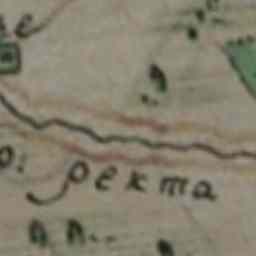 р: ректа